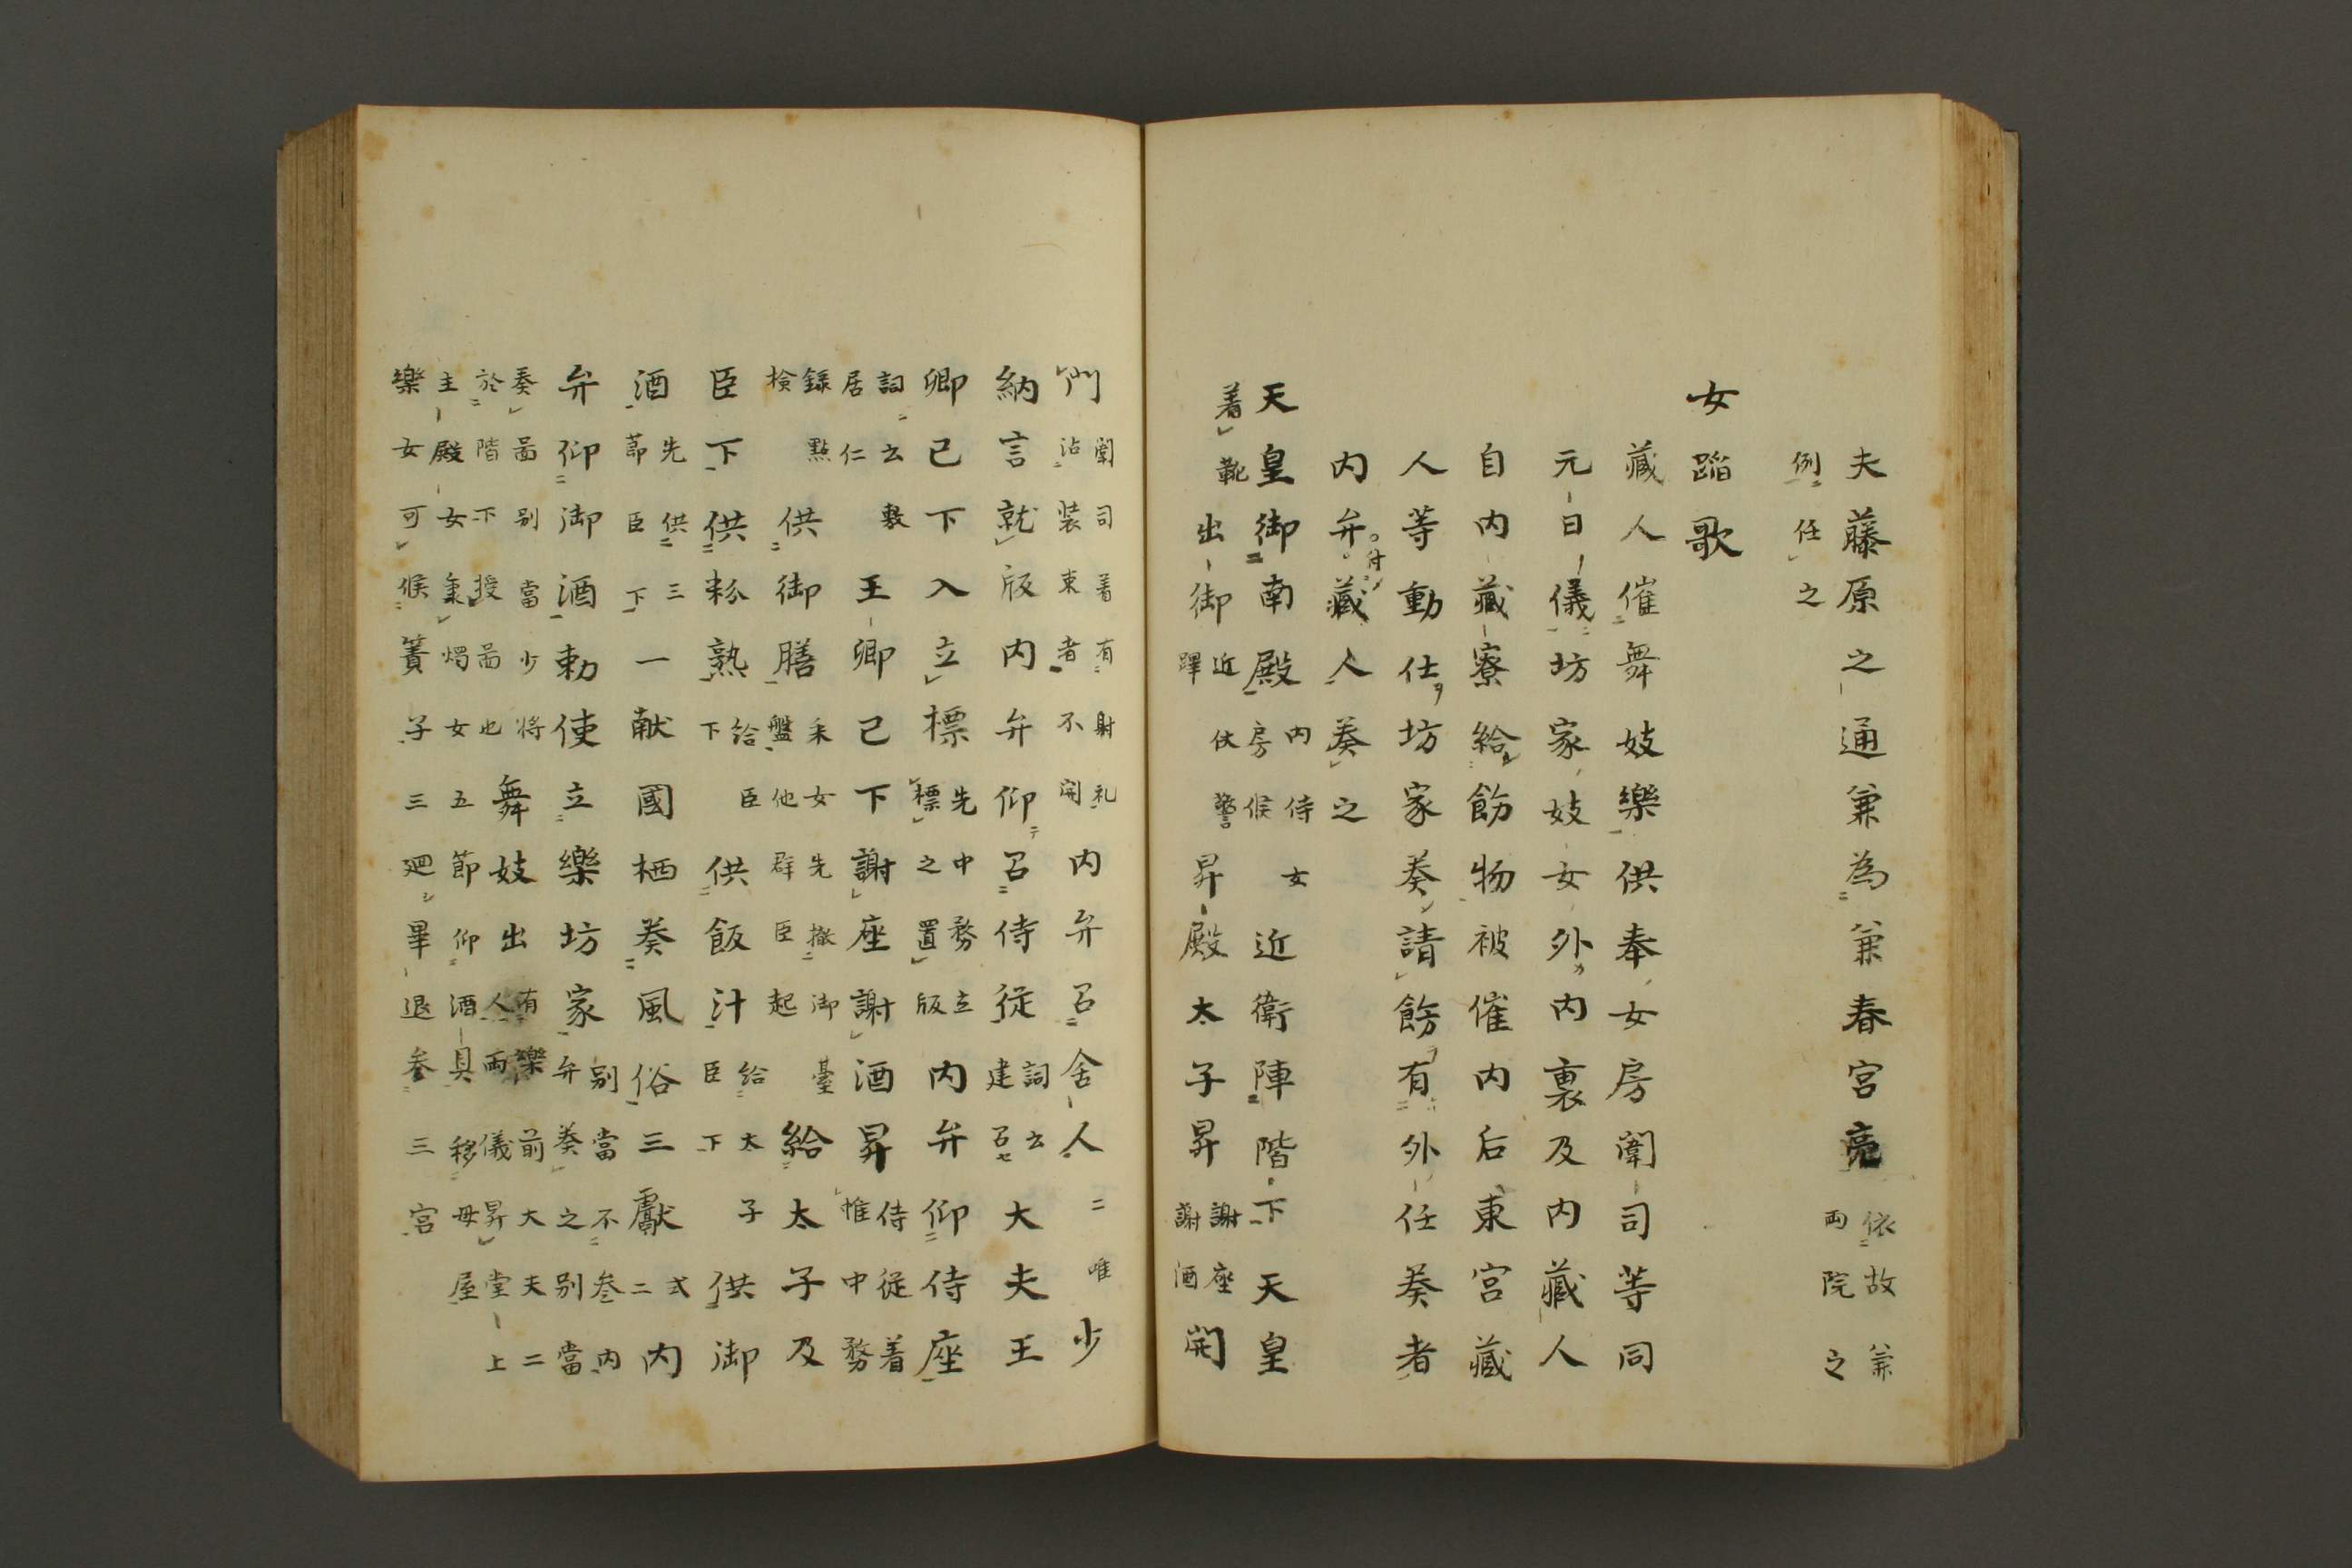 夫藤原之通兼為兼春宮亮依故兼両院之
例任之
女蹈歌
藏人催舞妓樂供奉女房闈司等同
元日儀坊家妓女外内裏及内藏人
自内藏寮給餝物被催内后東宮藏
人等動仕坊家奏請餝有外任奏者
内弁付藏人奏之
天皇御南殿内侍女房候近衛陣階下天皇
着靴出御近仗警蹕昇殿太子昇謝座謝酒開
門闈司着有射礼沾装束者不開内弁召舎人二唯少
納言就版内弁仰召侍従詞云建召大夫王
卿已下入立標先中務立標之置版内弁仰侍座
詞云敷居仁王卿已下謝座謝酒昇侍従着惟中務
録點検供御膳采女先撤御臺盤他群臣起給太子及
臣下供粉熟給臣下供飯汁給太子臣下供御
酒先供三節臣下一献國栖奏風俗三獻式二内
弁仰御酒勅使立樂坊家別當不参内弁奏之別當
奏啚別當少将於階下授啚也舞妓出有樂前大夫二人両儀昇堂上
主殿女秉燭女五節仰酒具移母屋
樂女可候簀子三廻畢退参三宮